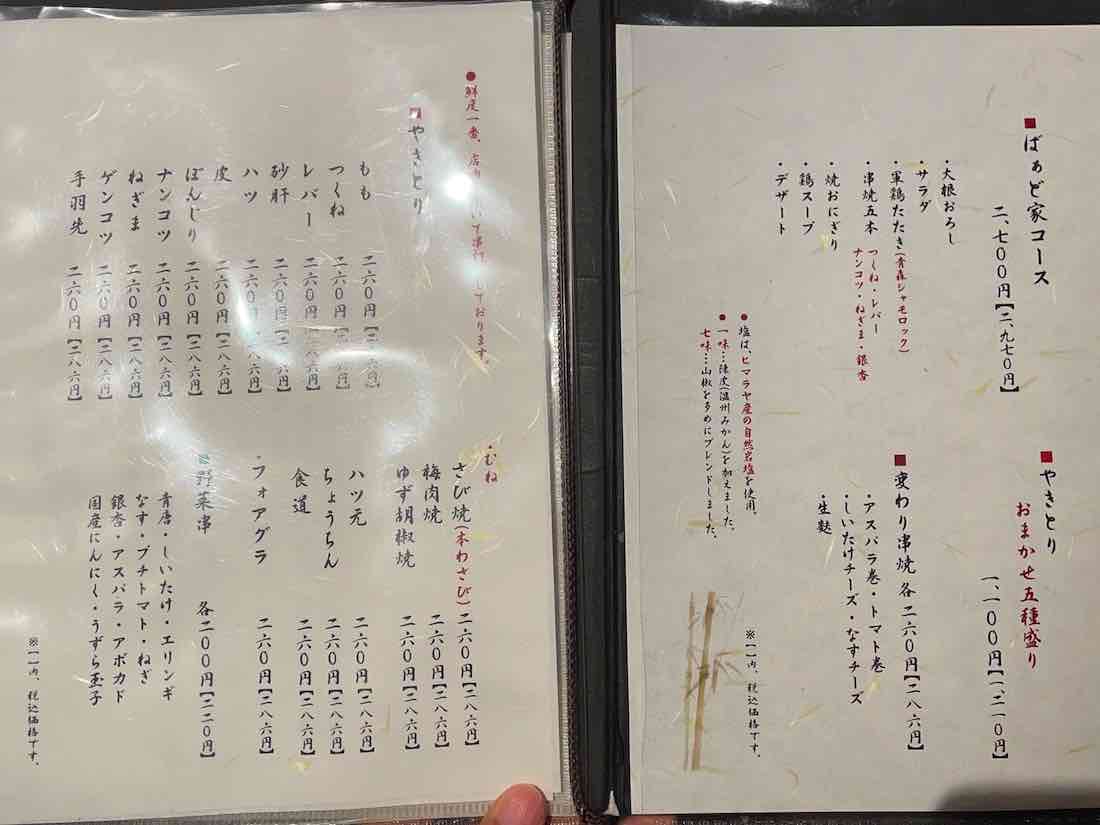 ■ばぁど家コース
二、七〇〇円【二、九七〇円】
・大根おろし
・サラダ
・軍鶏たたき(青森シャモロック)
・串焼五本 つくね・レバー
ナンコツ・ねぎま・銀杏
・焼おにぎり
・鶏スープ
・デザート
■やきとり
おまかせ五種盛り
一、一〇〇円【一、二一〇円】
■変わり串焼 各二六〇円【二八六円】
・アスパラ巻・トマト巻
・しいたけチーズ・なすチーズ
・生麩
●塩は、ヒマラヤ産の自然岩塩を使用。
●一味…陳皮(温州みかん)を加えました。
七味…山椒を多めにブレンドしました。
※【】内、税込価格です。
●鮮度一番、店内 して串打 しております。
■やきとり
もも 二六〇円【二八六円】
つくね 二六〇円【二八六円】
レバー 二六〇円【二八六円】
砂肝 二六〇円【二八六円】
ハツ 二六〇円【二八六円】
皮 二六〇円【二八六円】
ぼんじり 二六〇円【二八六円】
ナンコツ 二六〇円【二八六円】
ねぎま 二六〇円【二八六円】
ゲンコツ 二六〇円【二八六円】
手羽先 二六〇円【二八六円】
・むね
さび焼(本わさび) 二六〇円【二八六円】
梅肉焼 二六〇円【二八六円】
ゆず胡椒焼 二六〇円【二八六円】
ハツ元 二六〇円【二八六円】
ちょうちん 二六〇円【二八六円】
食道 二六〇円【二八六円】
・フォアグラ 二六〇円【二八六円】
■野菜串 各二〇〇円【二二〇円】
青唐・しいたけ・エリンギ
なす・プチトマト・ねぎ
銀杏・アスパラ・アボカド
国産にんにく・うずら玉子
※【】内、税込価格です。